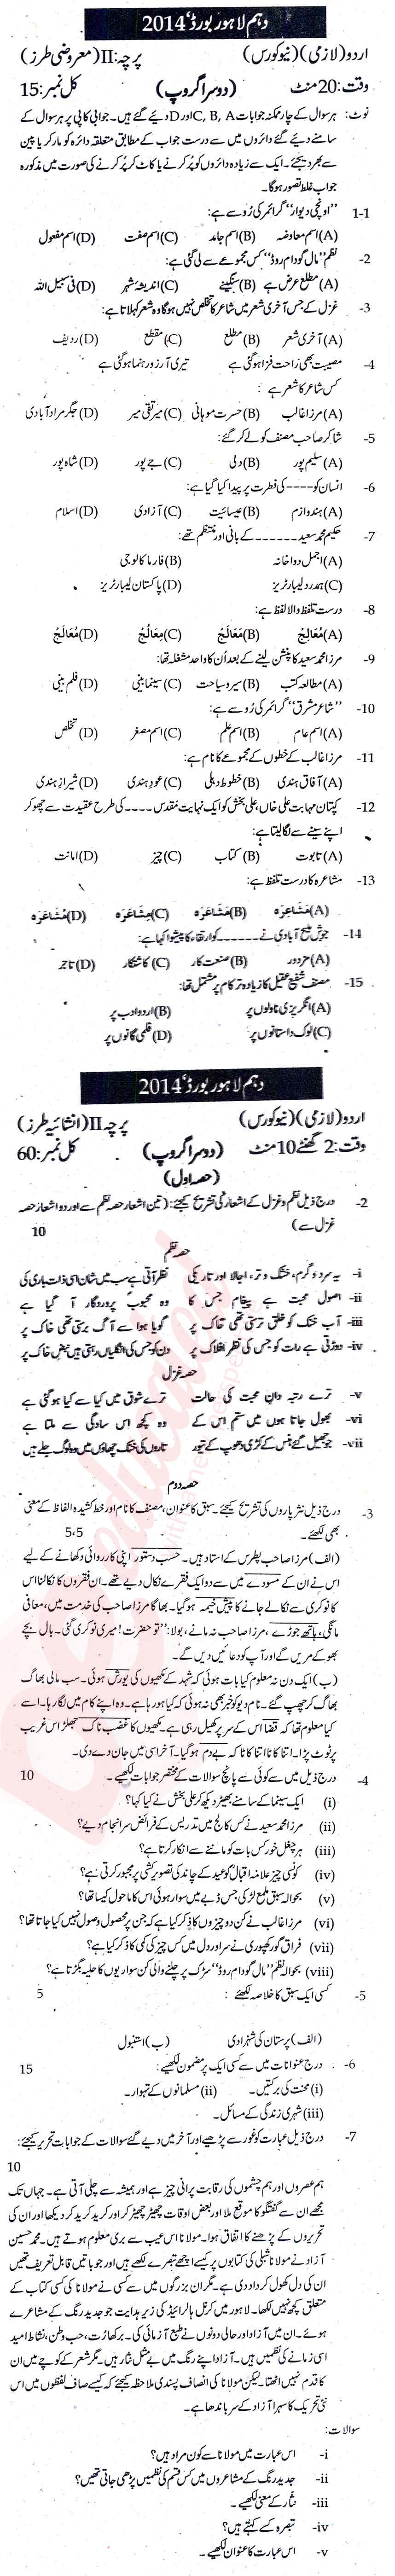 دہم لاہور بورڈ 2014ء
اردو (لازمی) (نیو کورس) پرچہ: II (معروضی طرز)
وقت: 20 منٹ (دوسرا گروپ) کل نمبر: 15
نوٹ: ہر سوال کے چار ممکنہ جوابات C, B, A اور D دیئے گئے ہیں۔ جوابی کاپی پر ہر سوال کے
سامنے دیئے گئے دائروں میں سے درست جواب کے مطابق متعلقہ دائرہ کو مارکر یا پین
سے بھر دیجئے۔ ایک سے زیادہ دائروں کو پُر کرنے یا کاٹ کر پُر کرنے کی صورت میں مذکورہ
جواب غلط تصور ہوگا۔
1-1 ''اونچی دیوار'' گرائمر کی رُو سے ہے:
(A) اسم معاوضہ (B) اسم جامد (C) اسم صفت (D) اسم مفعول
2- نظم ''مال گودام روڈ'' کس مجموعے سے لی گئی ہے:
(A) مطلع عرض ہے (B) سنگینے (C) اندیشۂ شہر (D) فی سبیل اللہ
3- غزل کے جس آخری شعر میں شاعر کا تخلص نہیں ہوگا وہ شعر کہلاتا ہے:
(A) آخری شعر (B) مطلع (C) مقطع (D) ردیف
4- مصیبت بھی راحت فزا ہوگئی ہے تیری آرزو رہنما ہوگئی ہے
کس شاعر کا شعر ہے :
(A) مرزا غالب (B) حسرت موہانی (C) میر تقی میر (D) جگر مراد آبادی
5- شاکر صاحب مصنف کو لے کر گئے:
(A) سلیم پور (B) دلی (C) جے پور (D) شاہ پور
6- انسان کو ---- کی فطرت پر پیدا کیا گیا ہے:
(A) ہندو ازم (B) عیسائیت (C) آزادی (D) اسلام
7- حکیم محمد سعید ------ کے بانی اور منتظم تھے:
(A) اجمل دواخانہ (B) فارما کالوجی
(C) ہمدرد لیبارٹریز (D) پاکستان لیبارٹریز
8- درست تلفظ والا لفظ ہے:
(A) مُعَالِج (B) مَعَالَج (C) مِعَالَج (D) مُعَالَج
9- مرزا محمد سعید کا پنشن لینے کے بعد اُن کا واحد مشغلہ تھا:
(A) مطالعہ کتب (B) سیر و سیاحت (C) سینما بینی (D) فلم بینی
10- ''شاعر مشرق'' گرائمر کی رُو سے ہے:
(A) اسم عام (B) اسم علم (C) اسم مصغر (D) تخلص
11- مرزا غالب کے خطوں کے مجموعے کا نام ہے:
(A) آفاق ہندی (B) خطوط دہلی (C) عود ہندی (D) شیراز ہندی
12- کپتان مہابت علی خاں، علی بخش کو ایک نہایت مقدس ---- کی طرح عقیدت سے چھو کر
اپنے سینے سے لگا لیتا ہے:
(A) تابوت (B) کتاب (C) چیز (D) امانت
13- مشاعرہ کا درست تلفظ ہے:
(A) مَشَاعِرَہ (B) مَشَاعَرَہ (C) مِشَاعَرَہ (D) مُشَاعَرَہ
14- جوش ملیح آبادی نے ------ کو ارتقاء کا پیشوا کہا ہے:
(A) مزدور (B) صنعت کار (C) کاشتکار (D) تاجر
15- مصنف شفیع عقیل کا زیادہ تر کام پر مشتمل تھا:
(A) انگریزی ناولوں پر (B) اردو ادب پر
(C) لوک داستانوں پر (D) فلمی گانوں پر
دہم لاہور بورڈ 2014ء
اردو (لازمی) (نیو کورس) پرچہ II (انشائیہ طرز)
وقت: 2 گھنٹے 10 منٹ (دوسرا گروپ) کل نمبر: 60
(حصہ اول)
2- درج ذیل نظم و غزل کے اشعار کی تشریح کیجئے: (تین اشعار حصہ نظم سے اور دو اشعار حصہ
غزل سے) 10
حصہ نظم
i- یہ سرد و گرم، خشک و تر، اجالا اور تاریکی نظر آتی ہے سب میں شان اسی ذات باری کی
ii- اصول محبت ہے پیغام جس کا وہ محبوب پروردگار آ گیا ہے
iii- آب خنک کو خلق ترستی تھی خاک پر گویا ہوا سے آگ برستی تھی خاک پر
iv- دوڑتی ہے رات کو جس کی نظر افلاک پر دن کو جس کی انگلیاں رہتی ہیں نبض خاک پر
حصہ غزل
v- ترے رتبہ دان محبت کی حالت ترے شوق میں کیا سے کیا ہوگئی ہے
vi- بھول جاتا ہوں میں ستم اس کے وہ کچھ اس سادگی سے ملتا ہے
vii- جو جھیل گئے ہنس کے کڑی دھوپ کے تیور تاروں کی خنک چھاؤں میں وہ لوگ جلے ہیں
حصہ دوم
3- درج ذیل نثر پاروں کی تشریح کیجئے۔ سبق کا عنوان، مصنف کا نام اور خط کشیدہ الفاظ کے معنی
بھی لکھئے۔ 5،5
(الف) مرزا صاحب پطرس کے استاد ہیں۔ حسب دستور اپنی کارروائی دکھانے کے لیے
اس نے ان کے مسودے میں سے دو ایک فقرے نکال دیے تھے۔ ان فقروں کا نکالنا اس
کا نوکری سے نکالے جانے کا پیش خیمہ ہوگیا۔ بھاگا مرزا صاحب کی خدمت میں، معافی
مانگی، ہاتھ جوڑے، مرزا صاحب نہ مانے، بولا: ''تو حضرت! میری نوکری گئی۔ بال بچے
بھوکے مریں گے اور آپ کو دعائیں دیں گے۔
(ب) ایک دن نہ معلوم کیا بات ہوئی کہ شہد کے مکھیوں کی یورش ہوئی۔ سب مالی بھاگ
بھاگ کر چھپ گئے۔ نام دیو کو خبر بھی نہ ہوئی کہ کیا ہو رہا ہے۔ وہ اپنے کام میں لگا رہا۔ اسے
کیا معلوم تھا کہ قضا اس کے سر پر کھیل رہی ہے۔ مکھیوں کا غضب ناک جھلڑ اس غریب
پر ٹوٹ پڑا۔ اتنا کاٹا اتنا کاٹا کہ بے دم ہوگیا۔ آخر اسی میں جان دے دی۔
4- درج ذیل میں سے کوئی سے پانچ سوالات کے مختصر جوابات لکھیے۔ 10
(i) ایک سینما کے سامنے بھیڑ دیکھ کر علی بخش نے کیا کہا؟
(ii) مرزا محمد سعید نے کس کالج میں تدریس کے فرائض سرانجام دیے؟
(iii) ہر چغل خور کس بات کو ماننے سے انکار کرتا ہے؟
(iv) کونسی چیز علامہ اقبال کو عید کے چاند کی تصویر کشی پر مجبور کرتی ہے؟
(v) بحوالہ سبق ملمع لڑکی جس ڈبے میں سوار ہوئی اس کا ماحول کیسا تھا؟
(vi) مرزا غالب نے کن دو چیزوں کا ذکر کیا ہے کہ جن پر محصول وصول نہیں کیا جاتا تھا؟
(vii) فراق گورکھپوری نے سر اور دل میں کس چیز کی کمی کا ذکر کیا ہے؟
(viii) بحوالہ نظم ''مال گودام روڈ'' سڑک پر چلنے والی کن سواریوں کا حلیہ بگڑتا ہے؟
5- کسی ایک سبق کا خلاصہ لکھئے : 5
(الف) پرستان کی شہزادی (ب) استنبول
6- درج عنوانات میں سے کسی ایک پر مضمون لکھیے: 15
(i) محنت کی برکتیں۔ (ii) مسلمانوں کے تہوار۔
(iii) شہری زندگی کے مسائل۔
7- درج ذیل عبارت کو غور سے پڑھیے اور آخر میں دیے گئے سوالات کے جوابات تحریر کیجئے:
10
ہم عصروں اور ہم چشموں کی رقابت پرانی چیز ہے اور ہمیشہ سے چلی آتی ہے۔ جہاں تک
مجھے ان سے گفتگو کا موقع ملا اور بعض اوقات چھیڑ چھیڑ کر اور کرید کرید کر دیکھا اور ان کی
تحریروں کے پڑھنے کا اتفاق ہوا۔ مولانا اس عیب سے بری معلوم ہوتے ہیں۔ محمد حسین
آزاد نے مولانا شبلی کی کتابوں پر کیسے اچھے تبصرے لکھے ہیں اور جو باتیں قابل تعریف تھیں
ان کی دل کھول کر داد دی ہے۔ مگر ان بزرگوں میں سے کسی نے مولانا کی کسی کتاب کے
متعلق کچھ نہیں لکھا۔ لاہور میں کرنل ہالرائیڈ کی زیر ہدایت جو جدید رنگ کے مشاعرے
ہوئے۔ ان میں آزاد اور حالی دونوں نے طبع آزمائی کی۔ برکھا رُت، حب وطن، نشاط امید
اسی زمانے کی نظمیں ہیں۔ آزاد اپنے رنگ میں بے مثل نثار ہیں۔ مگر شعر کے کوچے میں ان
کا قدم نہیں اٹھتا۔ لیکن مولانا کی انصاف پسندی ملاحظہ کیجئے کہ کیسے صاف لفظوں میں اس
نئی تحریک کا سہرا آزاد کے سر باندھا ہے۔
سوالات:
i- اس عبارت میں مولانا سے کون مراد ہیں؟
ii- جدید رنگ کے مشاعروں میں کس قسم کی نظمیں پڑھی جاتی تھیں؟
iii- نثار کے معنی لکھیے۔
iv- تبصرہ کسے کہتے ہیں؟
v- اس عبارت کا عنوان لکھیے۔